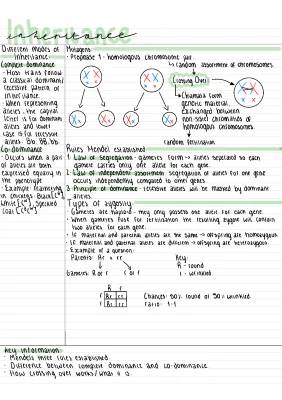 Inheritance
inheritance
Different modes of inheritance
Complete dominance
- How traits follow
a classical dominant/
recessive pattern of
inheritance.
- When representing
alleles the capital
letter is for dominant
alleles and lower
case is for recessive
alleles. Bb, BB, bb.
Co dominance
- Occurs when a pair
of alleles are both
expressed equally in
the phenotype
- Example feathering
in chickens Black
White Speckled
Mutagens
- Prophase 1 - homologous chromosome pair
random assortment of chromosomes.
Crossing Over
Chiasmata form
genetic material
exchanged between
non-sister chromatids of
homologous chromosomes.
random fertilisation
Rules Mendel established
1. Law of segregation - gametes form → alleles separated so each
gamete carries only one allele for each gene.
2. Law of independent assortment segregation of alleles for one gene
occurs independently compared to other genes
3. Principle of dominance - recessive alleles will be masked by dominant
alleles.
Types of zygosity
- Gametes are haploid - they only possess one allele for each gene.
- When gametes fuse for fertilisation the resulting zygote will contain
two alleles for each gene.
- If maternal and paternal alleles are the same → offspring are homozygous.
- If maternal and paternal alleles are different → offspring are heterozygous.
- Example of a question:
Parents: Rr x rr
Key:
R - round
r - wrinkled
Gametes: R or r
r or r
R r
r Rr rr
r Rr rr
Chances: 50% round or 50% wrinkled.
ratio: 1:1
Key information:
- Mendels three rules established
- Difference between complete dominance and co-dominance.
- How crossing over works / what it is